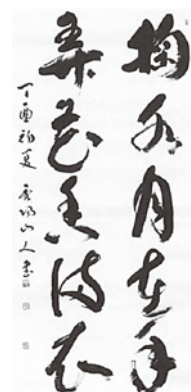 掬水月在手
弄花香满衣
丁酉初夏 山人書